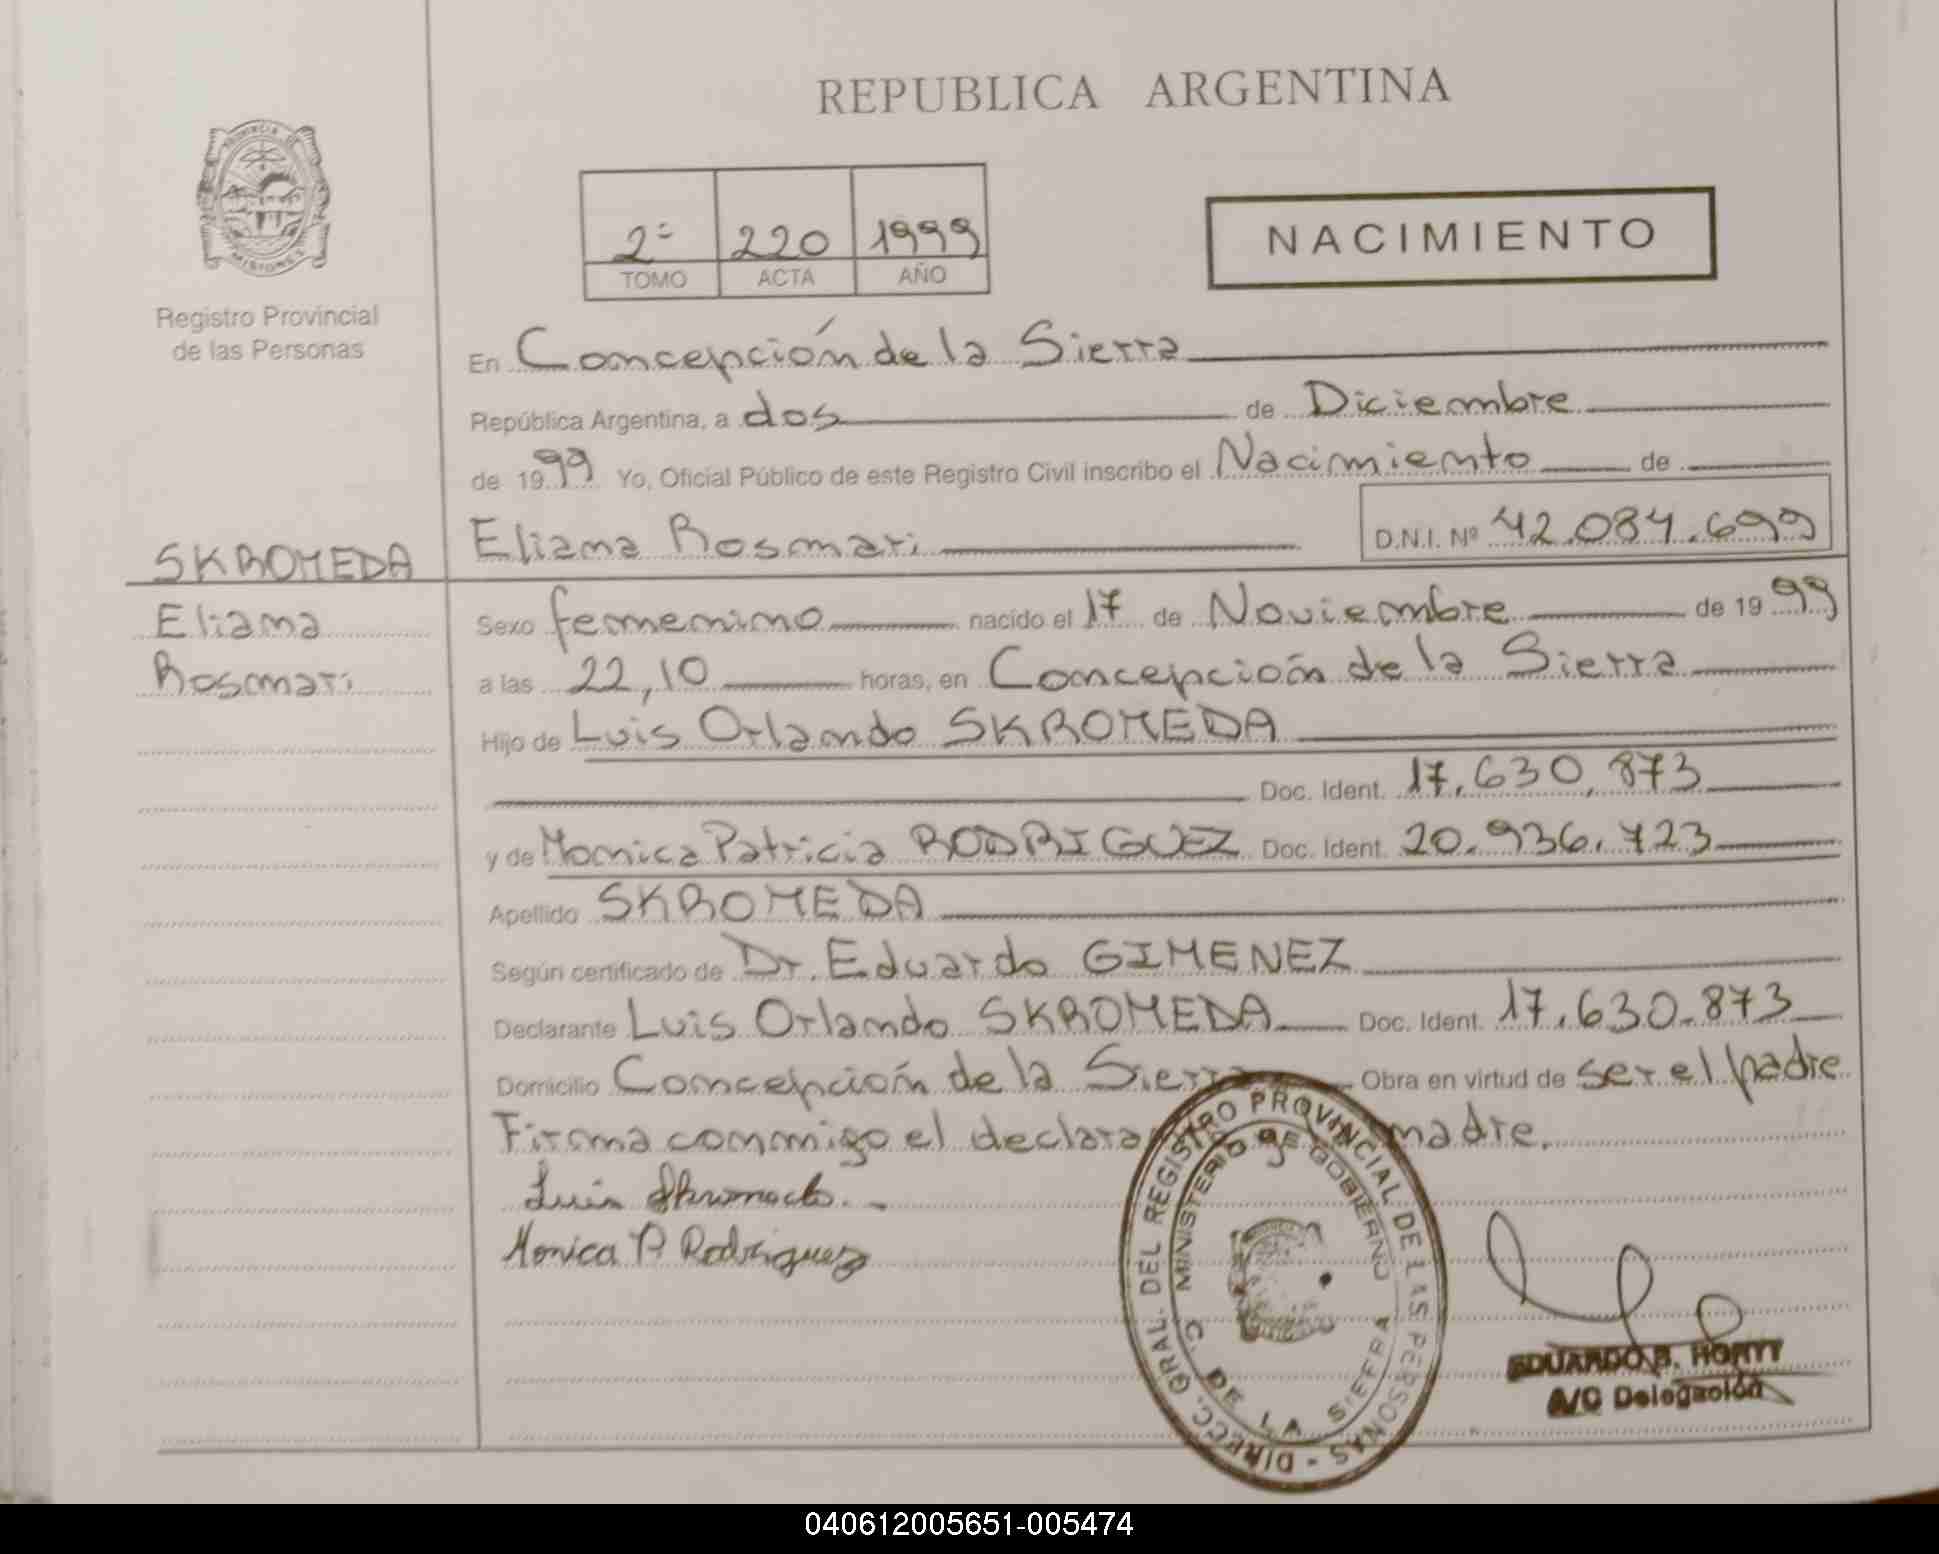 REPUBLICA ARGENTINA
PROVINCIA DE MISIONES
Registro Provincial
de las Personas
2º 220 1999
TOMO ACTA AÑO
NACIMIENTO
En Concepción de la Sierra
República Argentina, a dos de Diciembre
de 1999 Yo, Oficial Público de este Registro Civil inscribo el Nacimiento de
Eliana Rosmari D.N.I. Nº 42.084.699
SKROMEDA
Eliana
Rosmari
Sexo femenino nacido el 17 de Noviembre de 1999
a las 22,10 horas, en Concepción de la Sierra
Hijo de Luis Orlando SKROMEDA
Doc. Ident. 17.630.873
y de Monica Patricia RODRIGUEZ Doc. Ident. 20.936.723
Apellido SKROMEDA
Según certificado de Dr. Eduardo GIMENEZ
Declarante Luis Orlando SKROMEDA Doc. Ident. 17.630.873
Domicilio Concepción de la Sierra Obra en virtud de ser el padre
Firma conmigo el declara madre.
Luis Skromeda.-
Monica P. Rodriguez
DIRECC. GRAL. DEL REGISTRO PROVINCIAL DE LAS PERSONAS -
MINISTERIO DE GOBIERNO
C. DE LA SIERRA
EDUARDO B.
A/C Delegación
040612005651-005474